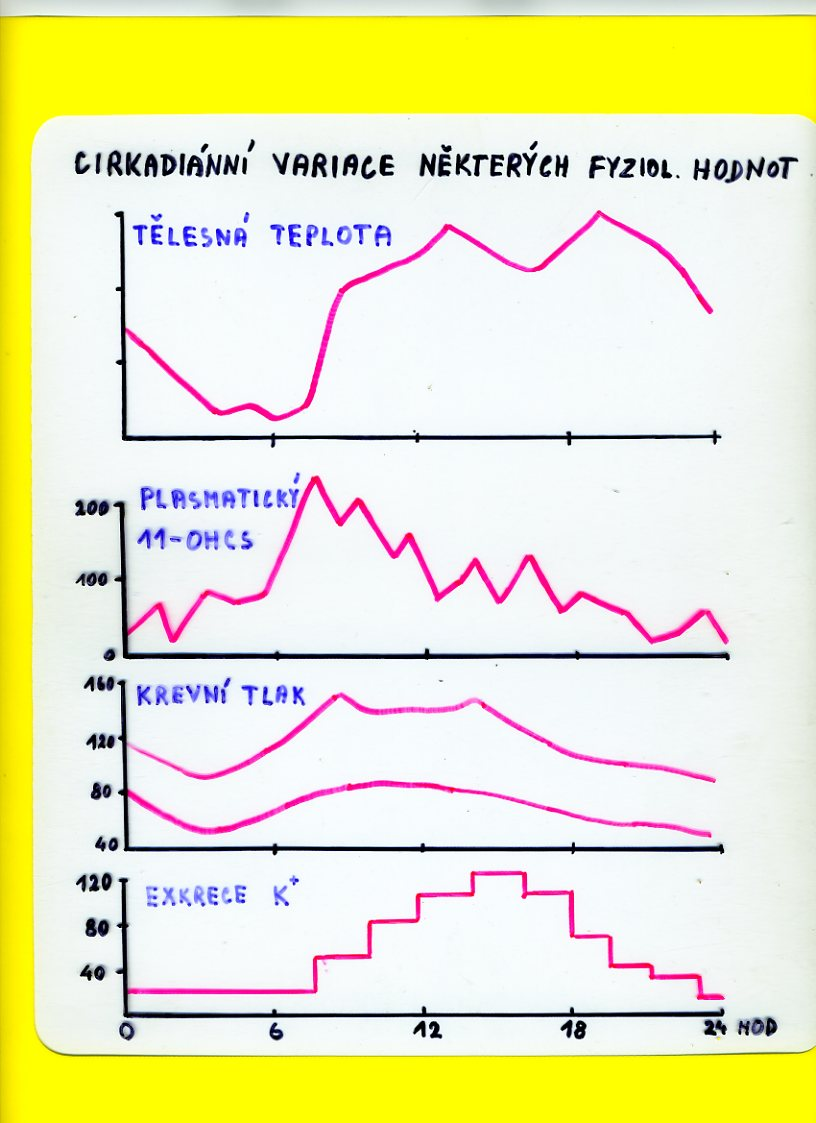 CIRKADIÁNNÍ VARIACE NĚKTERÝCH FYZIOL. HODNOT
TĚLESNÁ TEPLOTA
PLASMATICKÝ
11-OHCS
200
100
0
KREVNÍ TLAK
160
120
80
40
EXKRECE K⁺
120
80
40
0 6 12 18 24 HOD